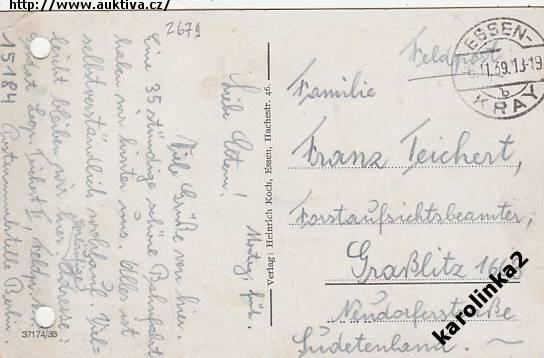 http://www.auktiva.cz/
2679
Liebe Eltern!
Montag früh.
Viele Grüße von hier.
Eine 35 stündige schöne Bahnfahrt
haben wir hinter uns. Alles ist
selbstverständlich wohlauf. Viel-
leicht bleiben wir hier.
Adresse:
Teichert F., Feldp.
15184 Postsammelstelle Berlin.
37174/38
Verlag: Heinrich Koch, Essen, Hachestr. 46.
Feldpost
ESSEN-
6.11.39.13-19
b
KRAY
Familie
Franz Teichert,
Forstaufsichtsbeamter,
Graßlitz
Neudorferstraße
Sudetenland.
karolinka2